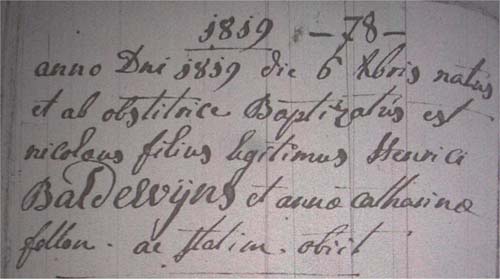 1819 - 78 -
anno Dni 1819 die 6 Xbris natus
et ab obstitrice Baptizatus est
nicolaus filius legitimus Henrici
Baldewijns et annæ catharinæ
fellon. ac statim. obiit